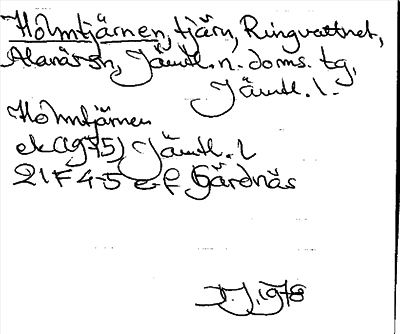 Holmtjärnen, tjärn, Ringvattnet,
Alanäs sn, Jämtl. n. doms. tg,
Jämtl. l.
Holmtjärnen
ek (1975) Jämtl. l
21F 4-5 e-f Gärdnäs
1978